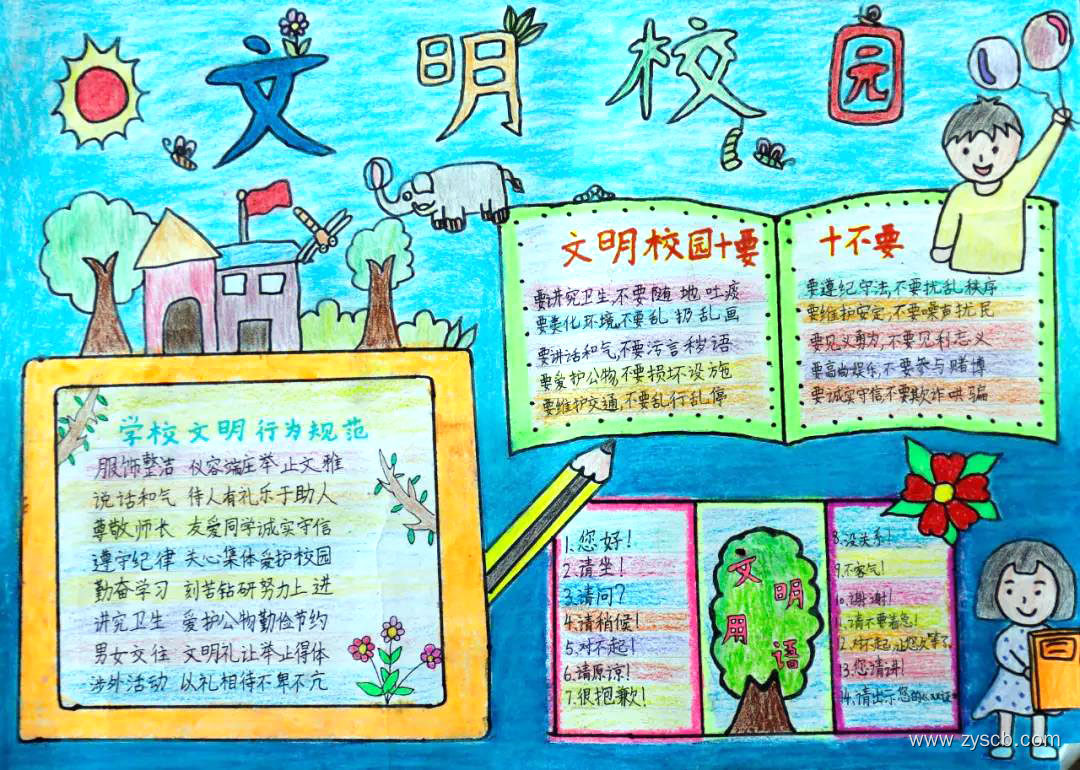 文明校园
文明校园十要
要讲究卫生,不要随地吐痰
要美化环境,不要乱扔乱画
要讲话和气,不要污言秽语
要爱护公物,不要损坏设施
要维护交通,不要乱行乱停
十不要
要遵纪守法,不要扰乱秩序
要维护安定,不要噪声扰民
要见义勇为,不要见利忘义
要高尚娱乐,不要参与赌博
要诚实守信不要欺诈哄骗
学校文明行为规范
服饰整洁 仪容端庄举止文雅
说话和气 待人有礼乐于助人
尊敬师长 友爱同学诚实守信
遵守纪律 关心集体爱护校园
勤奋学习 刻苦钻研努力上进
讲究卫生 爱护公物勤俭节约
男女交往 文明礼让举止得体
涉外活动 以礼相待不卑不亢
1.您好!
2.请坐!
3.请问?
4.请稍候!
5.对不起!
6.请原谅!
7.很抱歉!
文明用语
8.没关系!
9.不客气!
10.谢谢!
11.请不要着急!
12.对不起,让您久等了
13.您请讲!
14.请出示您的
www.zyscb.com